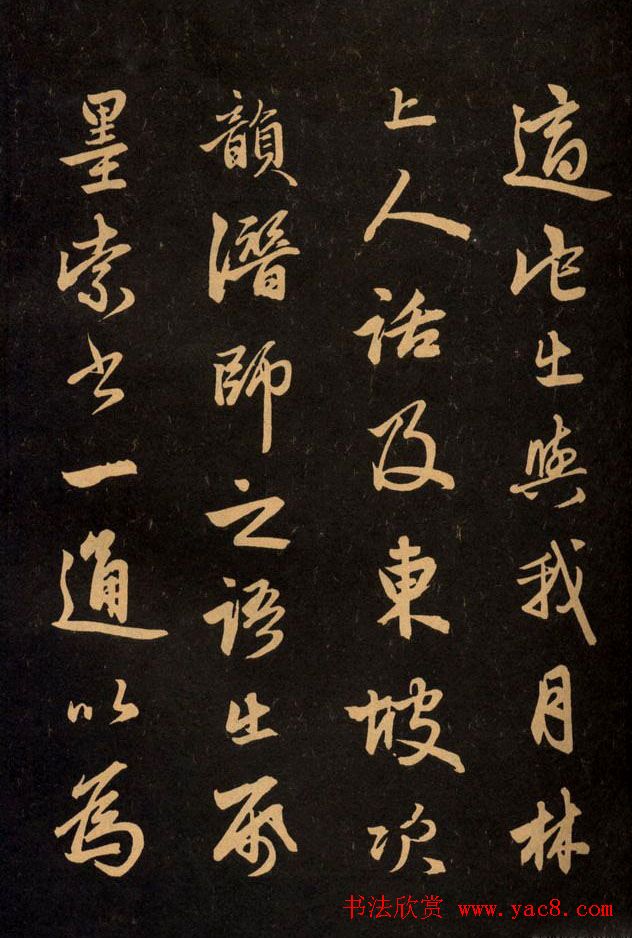 適出與我月林
上人話及東坡次
韻潛師之語出帋
墨索書一通以為
书法欣赏 www.yac8.com